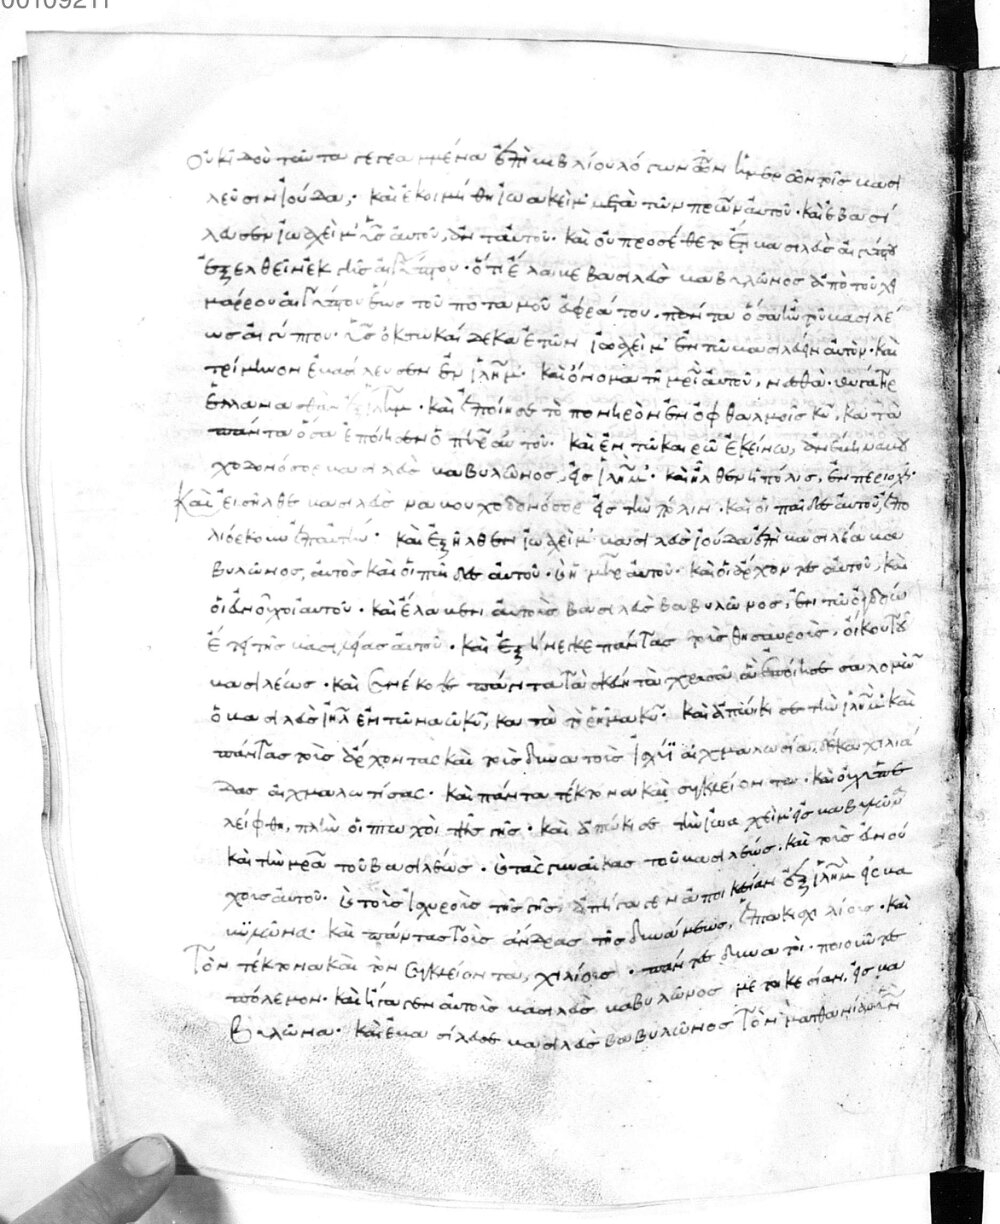 00109211
Οὐκ ἰδοὺ ταῦτα γεγραμμένα ἐπὶ βιβλίου λόγων τῶν ἡμερῶν τοῖς βασι
λεῦσιν ἰούδα· καὶ ἐκοιμήθη ἰωακεὶμ μετὰ τῶν πρων αὐτοῦ· καὶ ἐβασί
λευσεν ἰωαχεὶμ υς αὐτοῦ, ἀντ αὐτοῦ· καὶ οὐ προσέθετο ἔτι βασιλεὺς αἰγύπτου
ἐξελθεῖν ἐκ τῆς αἰγύπτου· ὅτι ἔλαβε βασιλεὺς βαβυλῶνος ἀπὸ τοῦ χει
μάρρου αἰγύπτου ἕως τοῦ ποταμοῦ ἐφράτου. πάντα ὅσα ἦν τοῦ βασιλέ
ως αἰγύπτου. υς ὀκτωκαίδεκα ἐτῶν ἰωαχεὶμ ἐν τῶ βασιλεύειν αὐτὸν· καὶ
τρίμηνον ἐβασίλευσεν ἐν ιλημ· καὶ ὄνομα τῆ μρι αὐτοῦ, νεσθὰ· θυγάτηρ
ἐλλαναθὰν ἐξ ιλημ· καὶ ἐποίησε τὸ πονηρὸν ἐν ὀφθαλμοῖς κυ, κατὰ
πάντα ὅσα ἐποίησεν ὁ πηρ αὐτοῦ· καὶ ἐν τῶ καιρῶ ἐκείνω, ἀνέβη ναβου
χοδονόσορ βασιλεὺς βαβυλῶνος, εἰς ιλημ· καὶ ἦλθεν ἡ πόλις, ἐν περιοχῆ·
Καὶ εἰσῆλθε βασιλεὺς ναβουχοδονόσορ εἰς τὴν πόλιν· καὶ οἱ παῖδες αὐτοῦ, ἐπο
λιόρκουν ἐπαὐτήν· καὶ ἐξῆλθεν ἰωαχεὶμ βασιλεὺς ἰούδα ἐπὶ βασιλέα βα
βυλῶνος, αὐτὸς καὶ οἱ παῖδες αὐτοῦ· καὶ ἡ μηρ αὐτοῦ· καὶ οἱ ἄρχοντες αὐτοῦ, καὶ
οἱ εὐνοῦχοι αὐτοῦ· καὶ ἔλαβεν αὐτοὺς βασιλεὺς βαβυλῶνος, ἐν τῶ ὀγδόω
ἔτει τῆς βασιλείας αὐτοῦ· καὶ ἐξήνεγκε πάντας τοὺς θησαυροὺς, οἴκου τοῦ
βασιλέως· καὶ συνέκοψε πάντα τὰ σκεύη τὰ χρυσᾶ ἃ ἐποίησε σαλομὼν
ὁ βασιλεὺς ιηλ ἐν τῶ ναῶ κυ, κατὰ τὸ ῥῆμα κυ· καὶ ἀπώκισε τὴν ιλημ καὶ
πάντας τοὺς ἄρχοντας καὶ τοὺς δυνατοὺς ἰσχύϊ αἰχμαλωσία, δέκα χιλιά
δας αἰχμαλωτίσας· καὶ πάντα τέκτονα καὶ συγκλείοντα· καὶ οὐχ ὑπε
λείφθη, πλὴν οἱ πτωχοὶ τῆς γῆς· καὶ ἀπώκισε τὴν ἰωαχεὶμ εἰς βαβυλῶνα
καὶ τὴν μρα τοῦ βασιλέως· καὶ τὰς γυναῖκας τοῦ βασιλέως· καὶ τοὺς εὐνού
χους αὐτοῦ· καὶ τοὺς ἰσχυροὺς τῆς γῆς, ἀπήγαγεν ἀποικίαν ἐξ ιλημ εἰς βα
βυλῶνα· καὶ πάντας τοὺς ἄνδρας τῆς δυνάμεως, ἑπτακισχιλίους· καὶ
Τὸν τέκτονα καὶ τὸν συγκλείοντα, χιλίους· πάντες δυνατοὶ· ποιοῦντες
πόλεμον· καὶ ἤγαγεν αὐτοὺς βασιλεὺς βαβυλῶνος μετοικεσίαν, εἰς βα
βυλῶνα· καὶ ἐβασίλευσε βασιλεὺς βαβυλῶνος Τὸν ματθανίαν